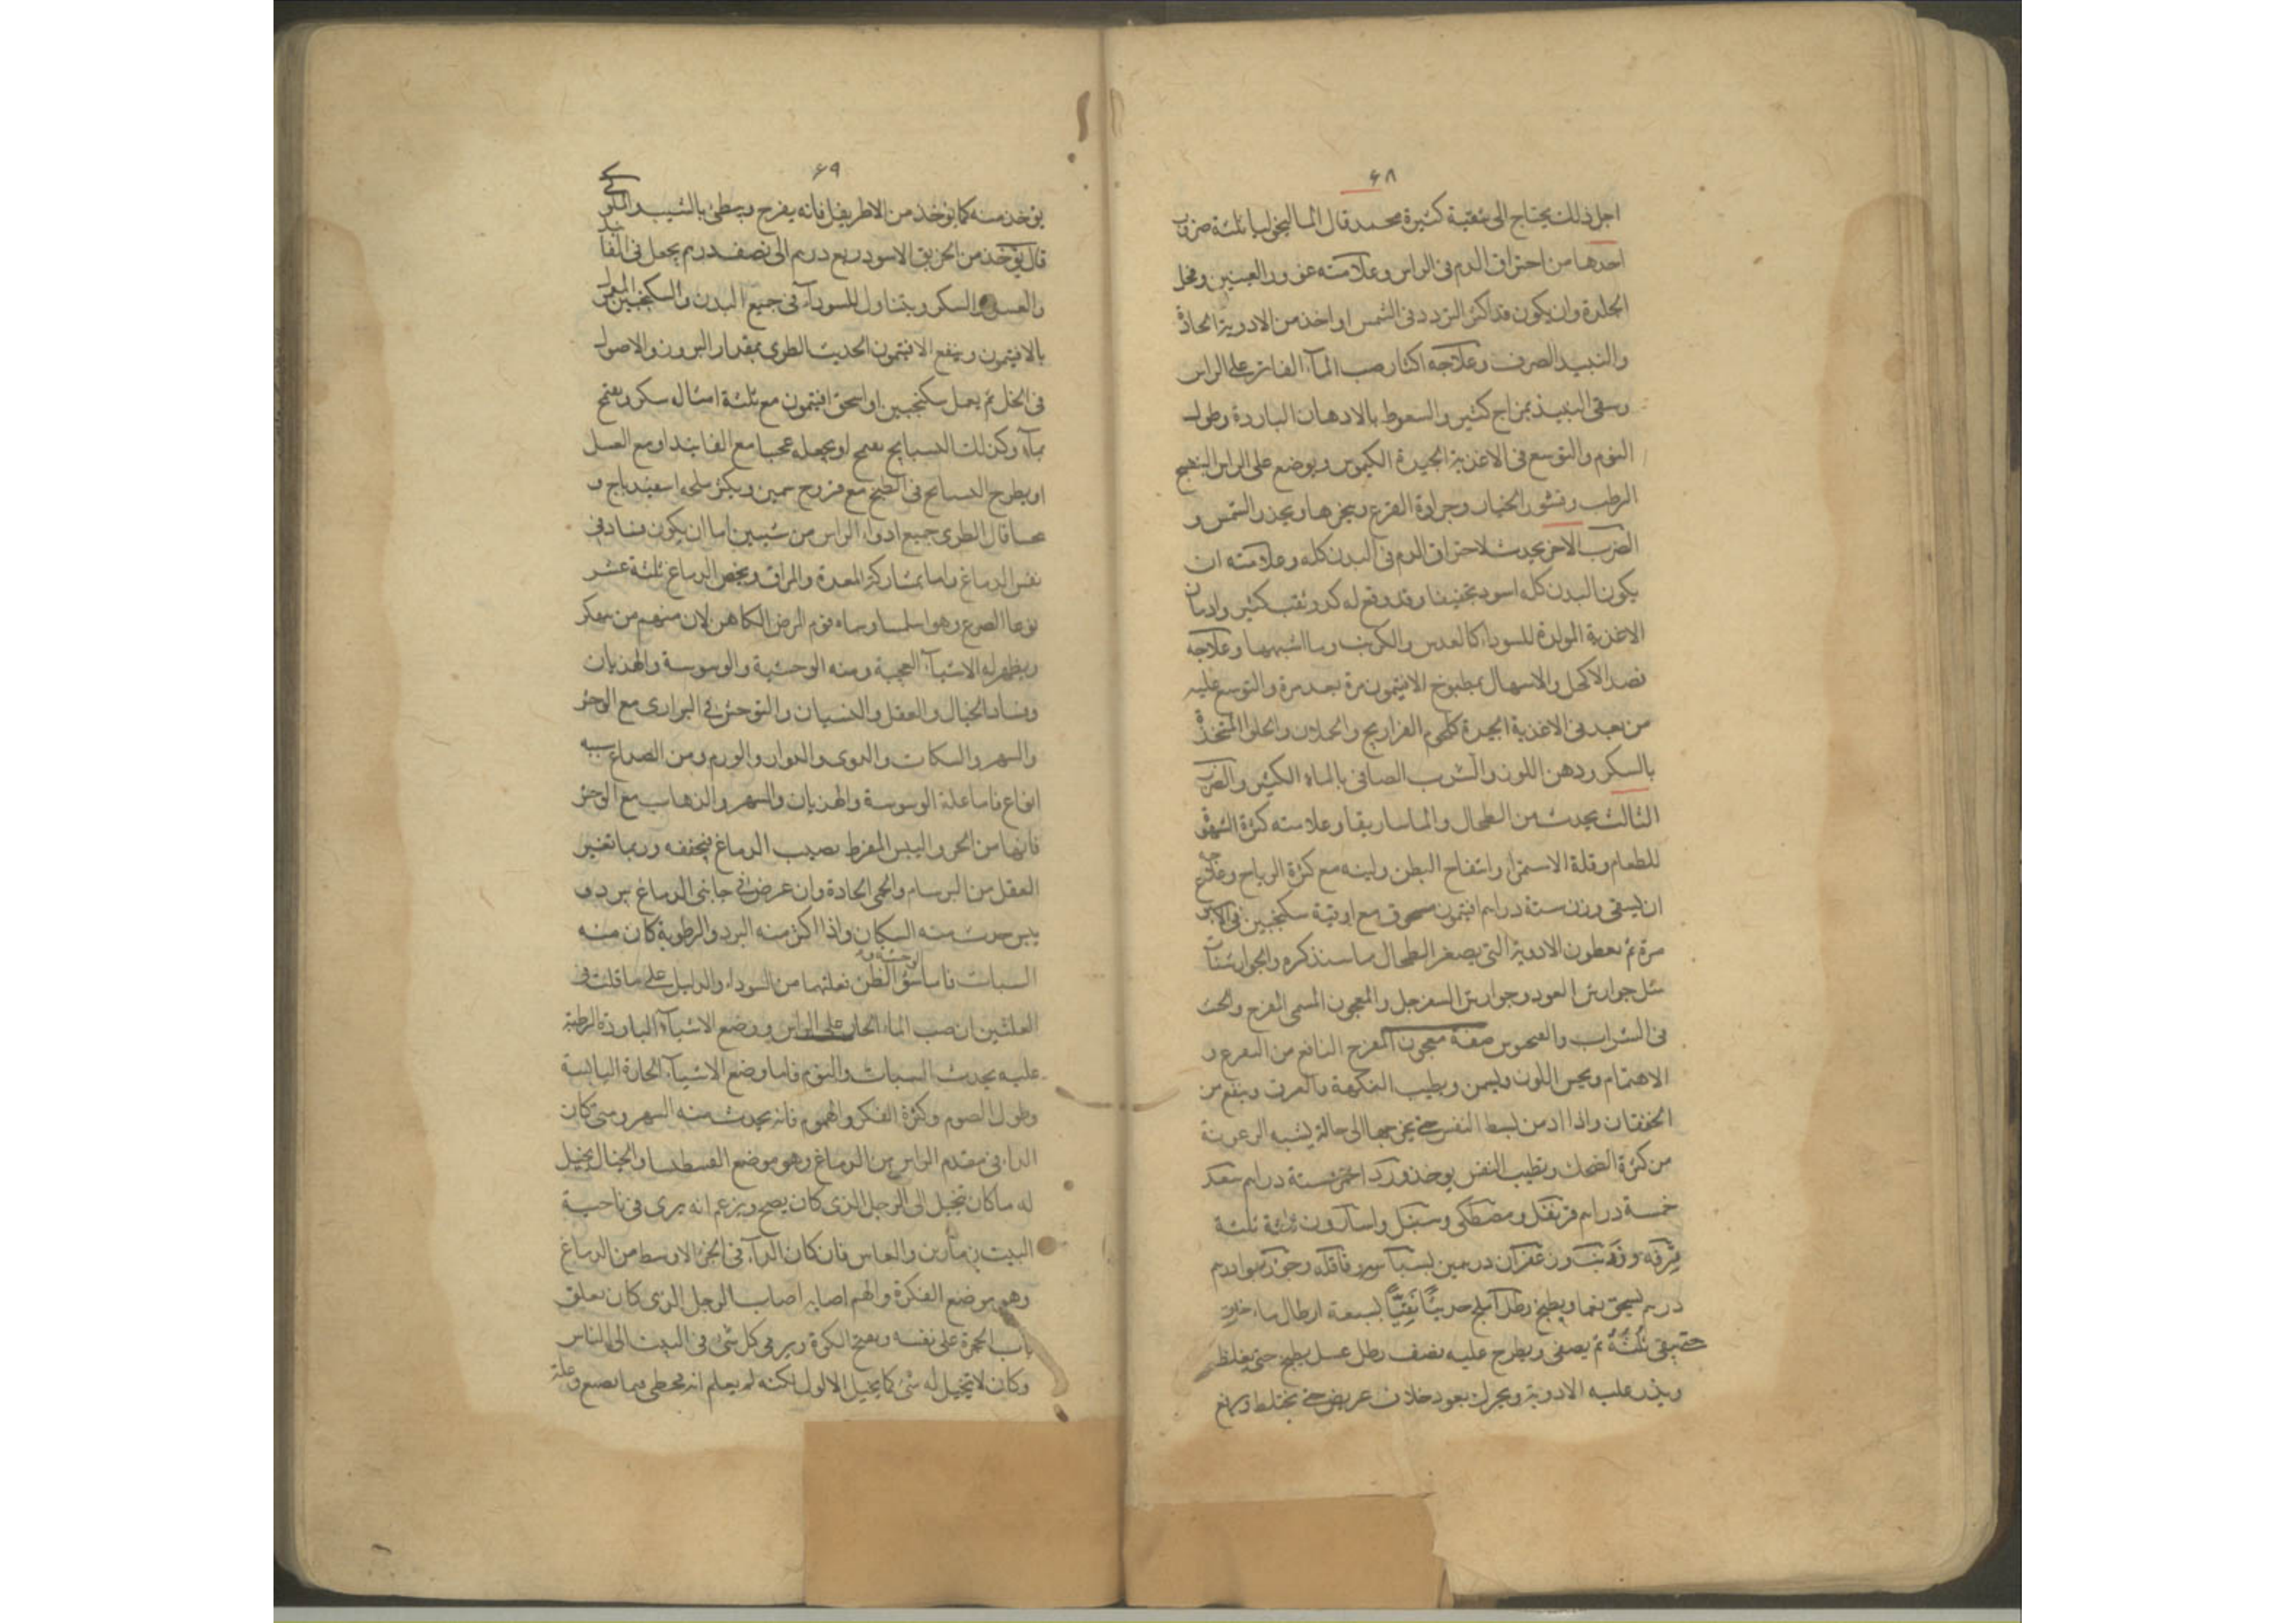 ۶۸
اجل ذلك يحتاج الى تنقية كثيرة محمد قال المالیخولیا ثلثة ضروب
احدها من احتراق الدم فى الراس وعلامته غور العينين وقحل
الجلدة وان يكون قد اكثر التردد فى الشمس او اخذ من الادوية الحادة
والنبيد الصرف وعلاجه اكثار صب المآء الفاتر على الراس
وسقى النبيذ بمزاج كثير والسعوط بالادهان الباردة وطول
النوم والتوسع فى الاغذية الجيدة الكيموس ويوضع على الراس البنفسج
الرطب وقشور الخيار وجرادة القرع ونحوها ويحذر الشمس و
الضرب الاخر يحدث لاحتراق الدم فى البدن كله وعلامته ان
يكون البدن كله اسود نحيفا وقد وقع له كد وتعب كثير وادمان
الاغذية المولدة للسوداء كالعدس والكرنب وما اشبهها وعلاجه
فصد الاكحل والاسهال بمطبوخ الافتيمون مرة بعد مرة والتوسع عليه
من بعد فى الاغذية الجيدة كلحوم الفراريج والحملان والحلو المتخذة
بالسكر ودهن اللوز والشرب الصافى بالماء الكثير والضرب
الثالث يحدث من الطحال والماساريقا وعلامته كثرة الشهوة
للطعام وقلة الاستمراء وانتفاخ البطن ولينه مع كثرة الرياح وعلاجه
ان يسقى وزن ستة دراهم افتيمون مسحوق مع اوقية سكنجبين فى
مرة ثم يعطون الادوية التى يصغر الطحال مما سنذكره والجوارشنات
مثل جوارش العود وجوارش السفرجل والمعجون المسمى المفرح والحث
فى الشراب صفة معجون المفرح النافع من التفزع و
الاهتمام ويحسن اللون ويسمن ويطيب النكهة والعرق وينفع من
الخفقان واذا ادمن بسط النفس حتى يخرجها الى حالة يشبه الرعونة
من كثرة الضحك وتطيب النفس يوخذ ورد احمر ستة دراهم سعد
خمسة دراهم قرنفل ومصطكى وسنبل واسارون ثلثة ثلثة
قرفه وزرنب وزعفران درهمين بسباسه وقاقله وجوزبوا درهم
درهم يسحق نعما ويطبخ رطل آملج حديثا نقيا بسبعة ارطال ماء
حتى يبقى ثلثه ثم يصفى ويطرح عليه نصف رطل عسل يطبخ حتى يغلظ
ويذر عليه الادوية ويحرك بعود خلاف عريض حتى يختلط ويرفع
۶۹
يؤخذ منه كما يؤخذ من الاطريفل فانه يفرح ويبطئ بالشيب
قال يؤخذ من الخربق الاسود ربع درهم الى نصف درهم يجعل فى
والعسل والسكر ويتناول للسودآء فى جميع البدن والسكنجبين
بالافتيمون وينفع الافتيمون الحديث الطرى بمقدار البزور والاصول
فى الخل ثم يعمل سكنجبين او اسحق افتيمون مع ثلثة امثاله سكر
بمآء وكذلك البسبايج او يجعله مع الفانيد او مع العسل
او يطرح البسبايج فى الطبخ مع فروج سمين ويكثر ملحه اسفيدباج و
قال الطبرى جميع ادواء الراس من شيئين اما ان يكون فساد فى
نفس الدماغ واما بمشاركة المعدة والمراق ويخص الدماغ ثلثة عشر
نوعا الصرع وهو ابلمسا وسماه قوم المرض الكاهن لان منهم من
ويظهر له الاشيآء العجيبة ومنه الوحشية والوسوسة والهذيان
وفساد الخيال والعقل والنسيان والتوحش فى البرارى مع الوحش
والسهر والسكات والدوى والدوار والورم ومن الصداع سبعة
انواع فاما علة الوسوسة والهذيان والسهر والذهاب مع الوحش
فانها من الحر واليبس المفرط يصيب الدماغ فيجففه وربما تغير
العقل من البرسام والحمى الحادة وان عرض فى جانبى الدماغ برد و
يبس حدث منه السكات واذا اكثر منه البرد والرطوبة كان منه
السبات فاما سؤ الظن فعلتهما من السوداء والدليل على ما قلت فى
العلتين ان صب الماء الحار على الراس ووضع الاشيآء الباردة الرطبة
عليه يحدث السبات والنوم فاما وضع الاشيآء الحارة اليابسة
وطول الصوم وكثرة الفكر والهموم فانه يحدث منه السهر ومتى كان
الداء فى مقدم الراس من الدماغ وهو موضع والخيال يخيل
له ما كان تخيل الى الرجل الذى كان يصيح ويزعم انه يرى فى ناحية
البيت زمارين والناس فان كان الدآء فى الجزء الاوسط من الدماغ
وهو موضع الفكرة والهم اصابه اصاب الرجل الذى كان يغلق
باب الحجرة على نفسه ويفتح الكوة ويرمى كل شئ فى البيت الى الناس
وكان لا يتخيل له شئ كما يخيل الاول لكنه لم يعلم انه مخطى فيما يصنع وعلة